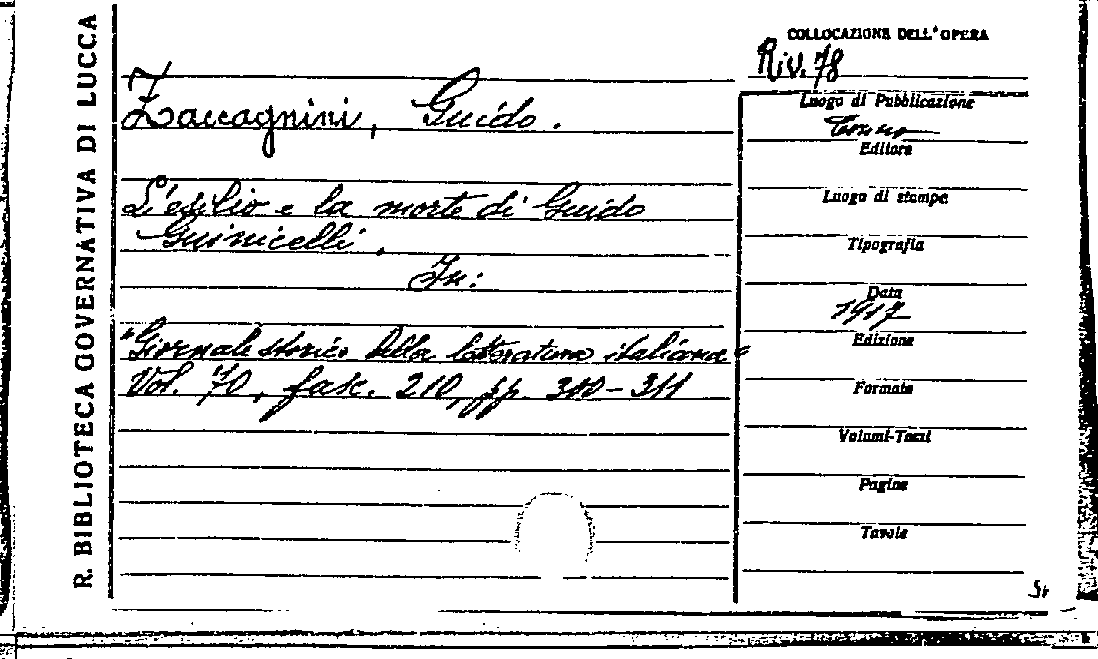 R. BIBLIOTECA GOVERNATIVA DI LUCCA
COLLOCAZIONE DELL'OPERA
Riv. 78
Zaccagnini, Guido.
L'esilio e la morte di Guido
Guinicelli.
In:
"Giornale storico della letteratura italiana"
Vol. 70, fasc. 210, pp. 310-311
Luogo di Pubblicazione
Torino
Editore
Luogo di stampa
Tipografia
Data
1917
Edizione
Formato
Volumi-Tomi
Pagine
Tavole